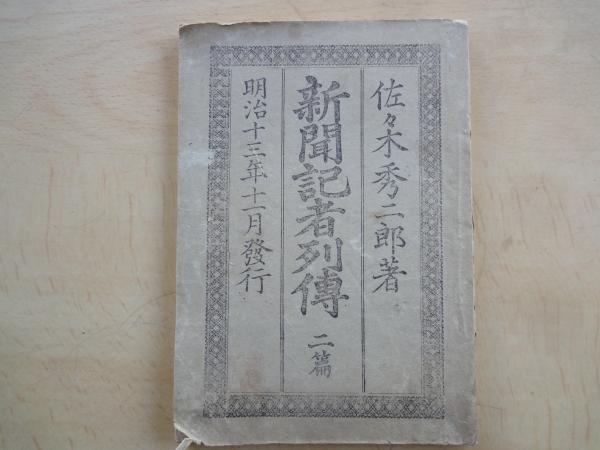 佐々木秀二郎著
新聞記者列傳 二篇
明治十三年十一月發行